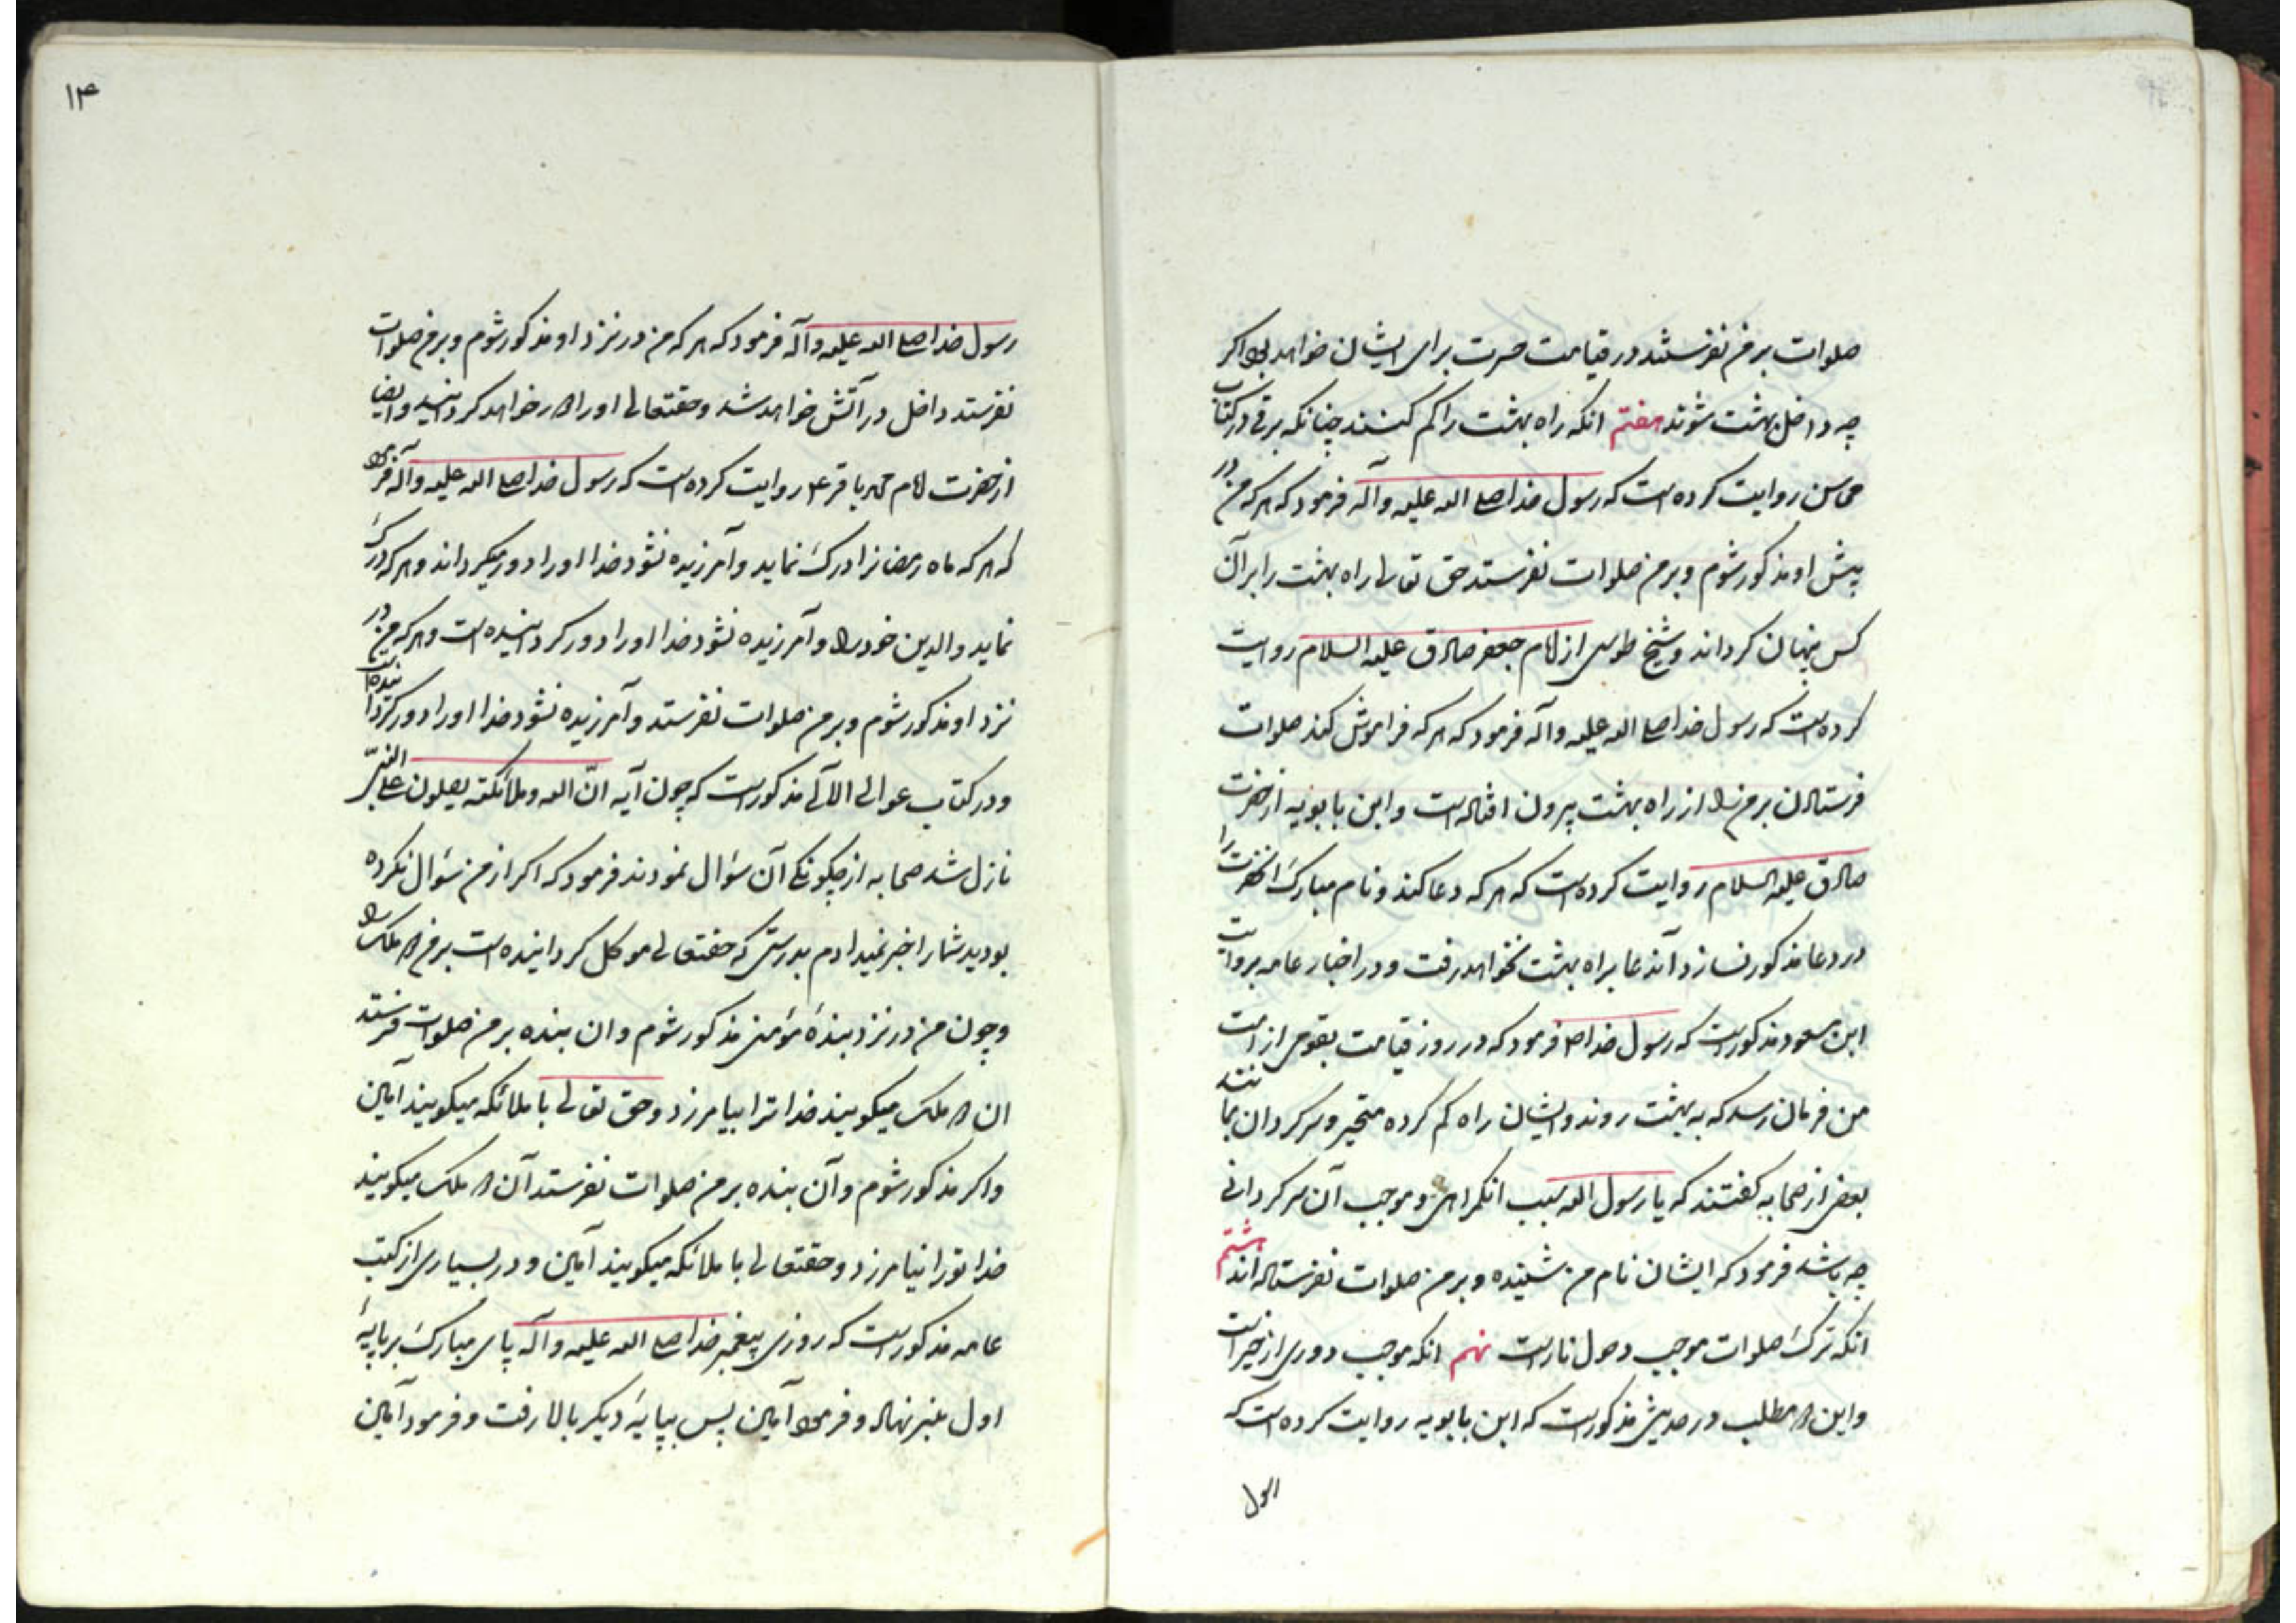 صلوات بر من نفرستند در قیامت حسرت برای ایشان خواهد بود اکر
چه داخل بهشت شوند هفتم انکه راه بهشت را کم کنند چنانکه برقی در کتاب
محاسن روایت کرده است که رسول خدا صلی الله علیه وآله فرمود که هر که من در
پیش او مذکور شوم و بر من صلوات نفرستد حق تعالی راه بهشت را بر آن
کس پنهان کرداند و شیخ طوسی از امام جعفر صادق علیه السلام روایت
کرده است که رسول خدا صلی الله علیه وآله فرمود که هر که فراموش کند صلوات
فرستادن بر من را از راه بهشت بیرون افتاده است و ابن بابویه از حضرت
صادق علیه السلام روایت کرده است که هر که دعا کند و نام مبارک انحضرت را
در دعا مذکور نسازد آندعا براه بهشت نخواهد رفت و در اخبار عامه بروایت
ابن مسعود مذکور است که رسول خدا صلی فرمود که در روز قیامت بقومی از امت
من فرمان رسد که به بهشت روند و ایشان راه کم کرده متحیر و سرکردان بمانند
بعضی از صحابه کفتند که یا رسول الله سبب انکمراهی و موجب آن سرکردانی
چه باشد فرمود که ایشان نام من شنیده و بر من صلوات نفرستاده اند هشتم
انکه ترک صلوات موجب دخول نار است نهم انکه موجب دوری از خیر است
و این دو مطلب در حدیثی مذکور است که ابن بابویه روایت کرده است که
رسول
۱۴
رسول خدا صلی الله علیه وآله فرمود که هر که من در نزد او مذکور شوم و بر من صلوات
نفرستد داخل در آتش خواهد شد و حقتعالی او را دور خواهد کردانید و ایضا
از حضرت امام محمد باقر ع روایت کرده است که رسول خدا صلی الله علیه وآله فرمود
که هر که ماه رمضانرا درک نماید و آمرزیده نشود خدا او را دور میکرداند و هر که درک
نماید والدین خود را و آمرزیده نشود خدا او را دور کردانیده است و هر که من در
نزد او مذکور شوم و بر من صلوات نفرستد و آمرزیده نشود خدا او را دور کردانیده است
و در کتاب عوالی اللآلی مذکور است که چون آیه انّ الله وملائکته یصلون علی النبیّ
نازل شد صحابه از چکونکی آن سؤال نمودند فرمود که اکر از من سؤال نکرده
بودید شما را خبر نمیدادم بدرستی که حقتعالی موکل کردانیده است بر من دو ملک را
و چون من در نزد بندهٔ مؤمنی مذکور شوم و ان بنده بر من صلوات فرستد
ان دو ملک میکویند خدا ترا بیامرزد و حق تعالی با ملائکه میکویند آمین
و اکر مذکور شوم و آن بنده بر من صلوات نفرستد آن دو ملک میکویند
خدا تو را نیامرزد و حقتعالی با ملائکه میکویند آمین و در بسیاری از کتب
عامه مذکور است که روزی پیغمبر خدا صلی الله علیه وآله پای مبارک بر پایهٔ
اول منبر نهاد و فرمود آمین پس بپایهٔ دیکر بالا رفت و فرمود آمین